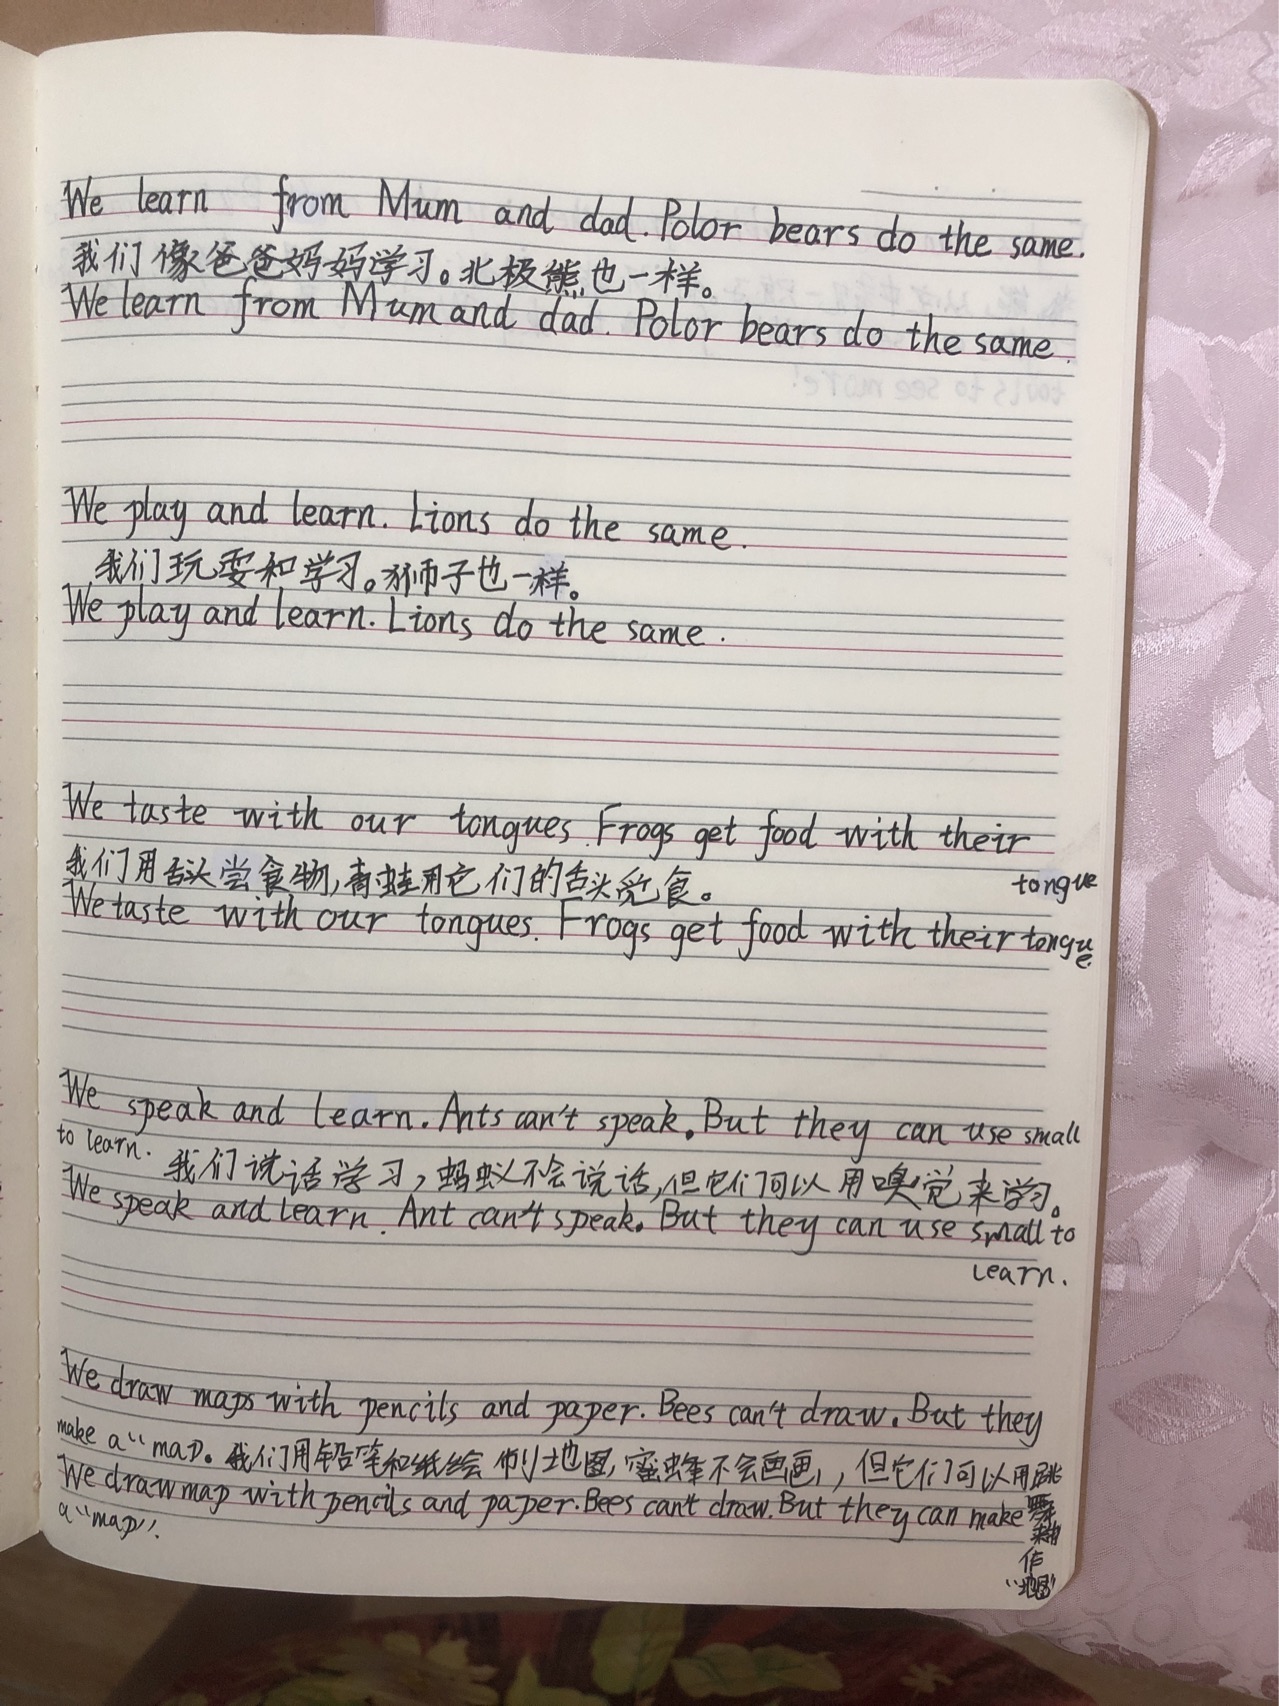 We learn from Mum and dad. Polor bears do the same.
我们像爸爸妈妈学习。北极熊也一样。
We learn from Mum and dad. Polor bears do the same.
We play and learn. Lions do the same.
我们玩耍和学习。狮子也一样。
We play and learn. Lions do the same.
We taste with our tongues. Frogs get food with their
tongue
我们用舌头尝食物,青蛙用它们的舌头觅食。
We taste with our tongues. Frogs get food with their tongue.
We speak and learn. Ants can't speak. But they can use small
to learn.
我们说话学习,蚂蚁不会说话,但它们可以用嗅觉来学习。
We speak and learn. Ant can't speak. But they can use small to
learn.
We draw maps with pencils and paper. Bees can't draw. But they
make a "map。
我们用铅笔和纸绘制地图,蜜蜂不会画画,,但它们可以用跳
舞来
作
"地图"
We draw map with pencils and paper. Bees can't draw. But they can make
a "map".